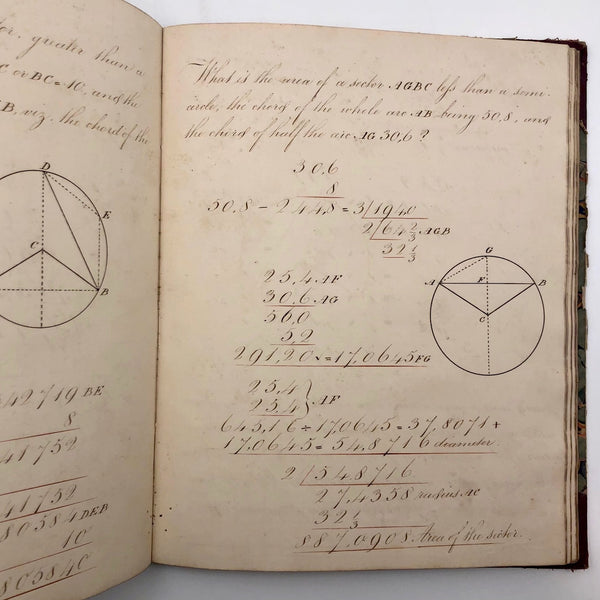 for. greater than a
C or BC=10, and the
B, viz. the chord of the
D
E
C
B
342719 BE
8
41752
41752
80584 DEB
10
805840
What is the area of a sector AGBC less than a semi-
circle, the chord of the whole arc AB being 50,8, and
the chord of half the arc AG 30,6?
30,6
8
50,8 - 244,8 = 3/194,0
2/64 2/3 AGB
32 1/3
G
A F B
C
25,4 AF
30,6 AG
56,0
5,2
291,20 √ = 17,0645 FG
25,4
25,4 } AF
645,16 ÷ 17,0645 = 37,8071 +
17,0645 = 54,8716 diameter.
2/54,8716
27,4358 radius AC
32 1/3
887,0908 Area of the sector.